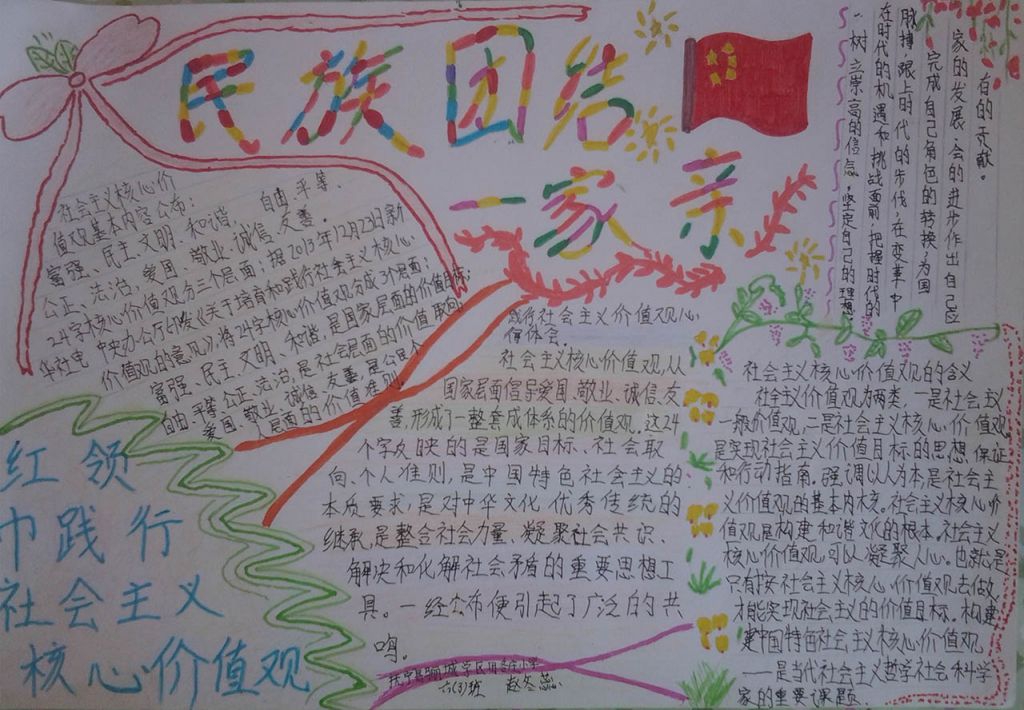 民族团结
一家亲
社会主义核心价
值观基本内容公布:
富强、民主、文明、和谐、自由、平等、
公正、法治、爱国、敬业、诚信、友善。
24字核心价值观分三个层面:据2013年12月23日新
华社电 中央办公厅印发《关于培育和践行社会主义核心
价值观的意见》,将24字核心价值观分成3个层面:
富强、民主、文明、和谐,是国家层面的价值目标;
自由、平等、公正、法治,是社会层面的价值取向;
爱国、敬业、诚信、友善,是公民个
人层面的价值准则
红领
巾践行
社会主义
核心价值观
践行社会主义价值观心
得体会。
社会主义核心价值观,从
国家层面倡导爱国、敬业、诚信、友
善,形成了一整套成体系的价值观。这24
个字反映的是国家目标、社会取
向、个人准则,是中国特色社会主义的
本质要求,是对中华文化优秀传统的
继承,是整合社会力量、凝聚社会共识、
解决和化解社会矛盾的重要思想工
具。一经公布便引起了广泛的共
鸣。
六(3)班
一树立崇高的信念,坚定自己的理想
在时代的机遇和挑战面前,把握时代的
脉搏,跟上时代的步伐,在变革中
完成自己角色的转换,为国
家的发展,会的进步作出自己应
有的贡献。
社会主义核心价值观的含义
社会主义价值观为两类,一是社会主义
一般价值观,二是社会主义核心价值观
是实现社会主义价值目标的思想保证
和行动指南。强调以人为本,是社会主
义价值观的基本内核。社会主义核心价
值观是构建和谐文化的根本,社会主义
核心价值观,可以凝聚人心。也就是
只有按社会主义核心价值观去做,
才能实现社会主义的价值目标。构建
建中国特色社会主义核心价值观,
一是当代社会主义哲学社会科学
家的重要课题.